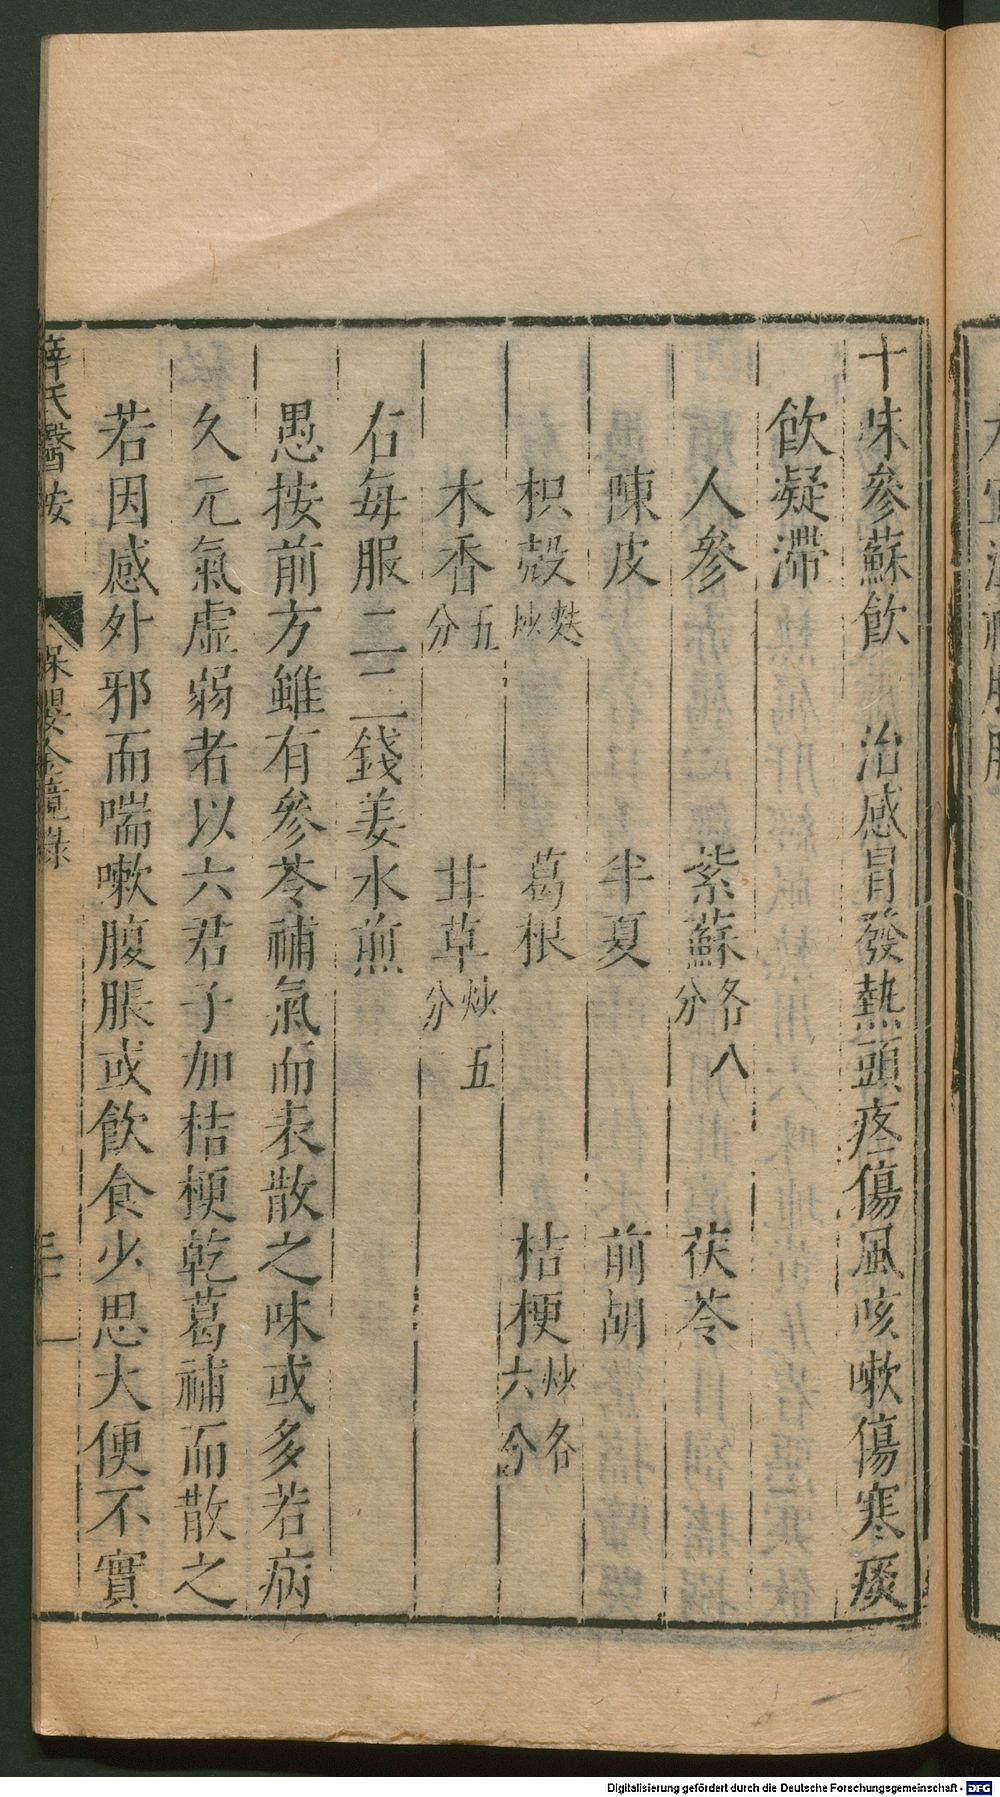 十味參蘇飲　治感冒發熱頭疼傷風咳嗽傷寒痰
飲凝滯
人參　紫蘇各八分　茯苓
陳皮　半夏　前胡
枳殼麩炒　葛根　桔梗炒各六分
木香五分　甘草炒五分
右每服二三錢姜水煎
愚按前方雖有參苓補氣而表散之味或多若病
久元氣虛弱者以六君子加桔梗乾葛補而散之
若因感外邪而喘嗽腹脹或飲食少思大便不實
薛氏醫按　保嬰金鏡錄
Digitalisierung gefördert durch die Deutsche Forschungsgemeinschaft - DFG